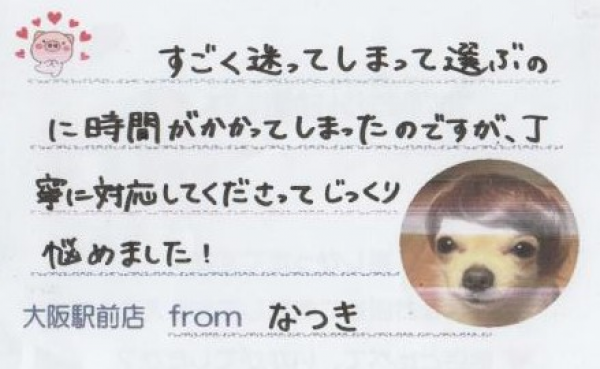 すごく迷ってしまって選ぶの
に時間がかかってしまったのですが、丁
寧に対応してくださってじっくり
悩めました!
大阪駅前店 from なつき